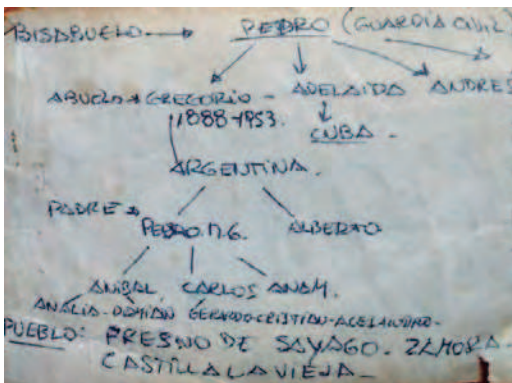 BISABUELO → PEDRO (GUARDIA CIVIL)
ABUELO → GREGORIO - ADELAIDA ANDRES
1888-1953. CUBA -
ARGENTINA.
PADRE → PEDRO M.G. ALBERTO
ANIBAL CARLOS ANAM.
ANALIA-DAMIAN GERARDO-CRISTIAN-ALEJANDRO-
PUEBLO: FRESNO DE SAYAGO. ZAMORA-
CASTILLA LA VIEJA-